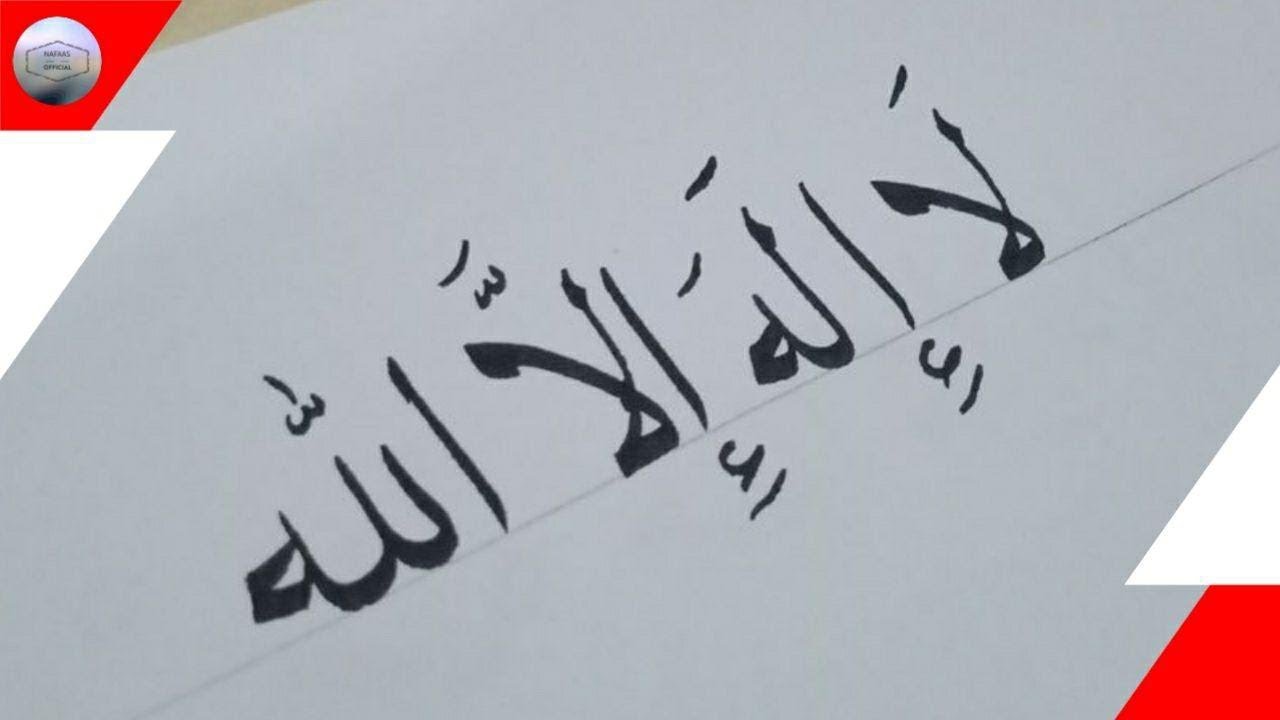 لَا إِلٰهَ إِلَّا اللّٰه
NAFAAS
OFFICIAL